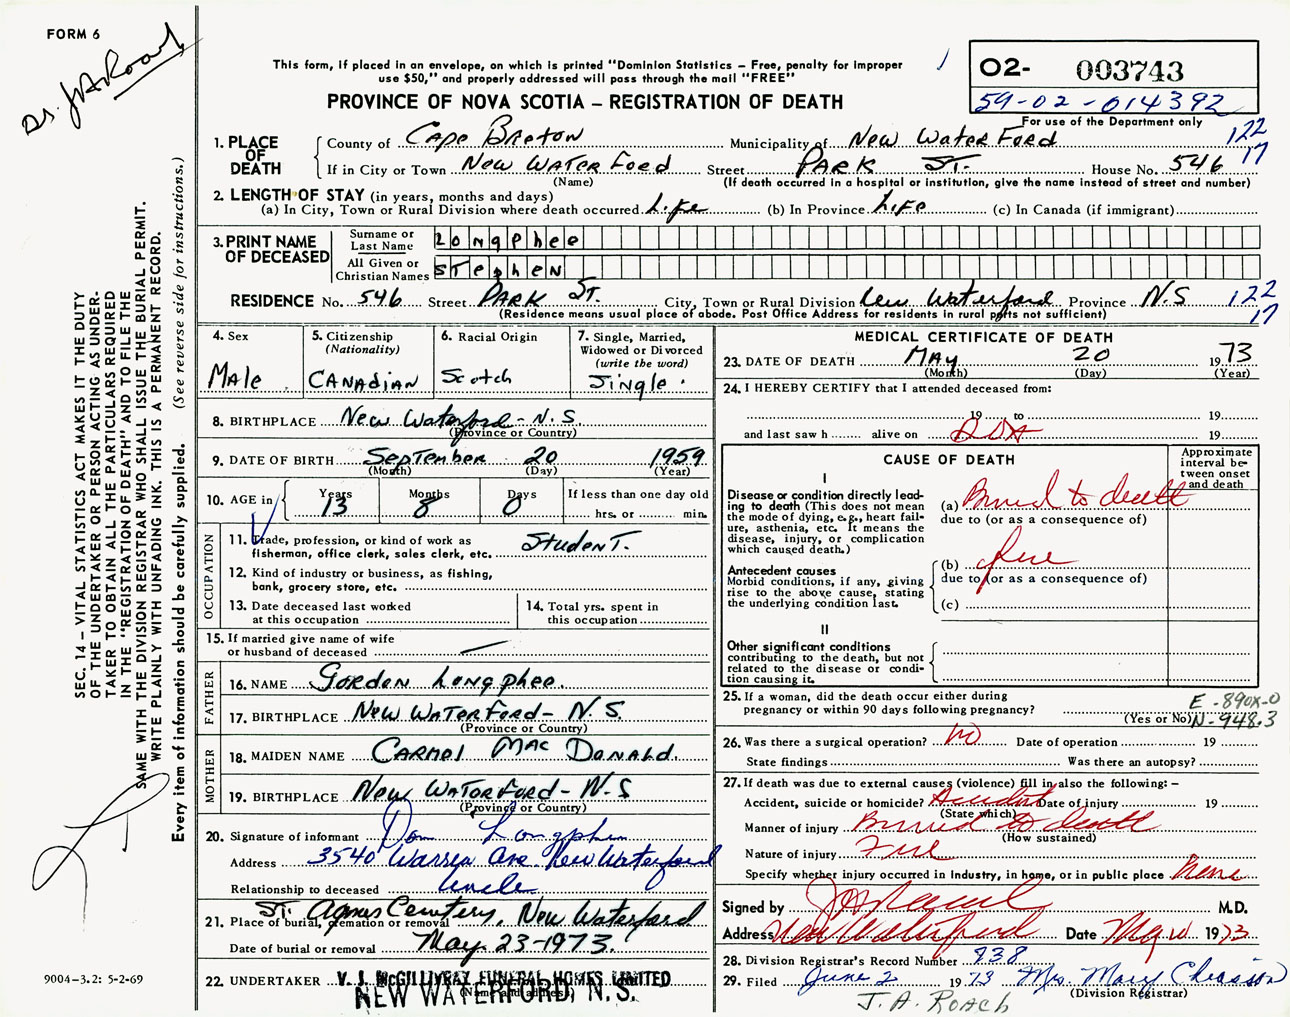 FORM 6
Dr. J A Roach
This form, if placed in an envelope, on which is printed "Dominion Statistics – Free, penalty for improper
use $50," and properly addressed will pass through the mail "FREE"
PROVINCE OF NOVA SCOTIA – REGISTRATION OF DEATH
O2- 003743
59-02-014392
For use of the Department only
122
17
1. PLACE OF DEATH
County of Cape Breton Municipality of New WaterFord
If in City or Town New WaterFord Street PARK ST. House No. 546
(Name) (If death occurred in a hospital or institution, give the name instead of street and number)
2. LENGTH OF STAY (in years, months and days)
(a) In City, Town or Rural Division where death occurred Life (b) In Province Life (c) In Canada (if immigrant)
3. PRINT NAME OF DECEASED
Surname or Last Name Longphee
All Given or Christian Names STephen
RESIDENCE No. 546 Street PARK ST. City, Town or Rural Division New Waterford Province N.S 122
(Residence means usual place of abode. Post Office Address for residents in rural parts not sufficient) 17
4. Sex
Male
5. Citizenship
(Nationality)
CANADIAN
6. Racial Origin
Scotch
7. Single, Married,
Widowed or Divorced
(write the word)
Single
8. BIRTHPLACE New Waterford - N.S.
(Province or Country)
9. DATE OF BIRTH September 20 1959
(Month) (Day) (Year)
10. AGE in Years 13 Months 8 Days 0 If less than one day old
hrs. or min.
OCCUPATION
11. Trade, profession, or kind of work as
fisherman, office clerk, sales clerk, etc. STudenT.
12. Kind of industry or business, as fishing,
bank, grocery store, etc.
13. Date deceased last worked
at this occupation
14. Total yrs. spent in
this occupation
15. If married give name of wife
or husband of deceased —
FATHER
16. NAME Gordon Longphee.
17. BIRTHPLACE New WaterFord - N.S.
(Province or Country)
MOTHER
18. MAIDEN NAME Carmel Mac Donald.
19. BIRTHPLACE New WaterFord - N.S
(Province or Country)
20. Signature of informant Don Longphee
Address 3540 Warren Ave New Waterford
Relationship to deceased Uncle
21. Place of burial, cremation or removal St. Agnes Cemetery, New Waterford
Date of burial or removal May 23-1973.
22. UNDERTAKER V. J. McGILLIVRAY FUNERAL HOMES LIMITED
(Name and address)
NEW WATERFORD, N. S.
MEDICAL CERTIFICATE OF DEATH
23. DATE OF DEATH May 20 1973
(Month) (Day) (Year)
24. I HEREBY CERTIFY that I attended deceased from:
19 to 19
and last saw h alive on DOA 19
CAUSE OF DEATH
Approximate
interval be-
tween onset
and death
I
Disease or condition directly lead-
ing to death (This does not mean
the mode of dying, e.g., heart fail-
ure, asthenia, etc. It means the
disease, injury, or complication
which caused death.)
(a) Burned to death
due to (or as a consequence of)
Antecedent causes
Morbid conditions, if any, giving
rise to the above cause, stating
the underlying condition last.
(b) fire
due to (or as a consequence of)
(c)
II
Other significant conditions
contributing to the death, but not
related to the disease or condi-
tion causing it.
25. If a woman, did the death occur either during
pregnancy or within 90 days following pregnancy?
(Yes or No)
E-890X-0
N-948.3
26. Was there a surgical operation? No Date of operation 19
State findings Was there an autopsy?
27. If death was due to external causes (violence) fill in also the following: –
Accident, suicide or homicide? Accident Date of injury 19
(State which)
Manner of injury Burned to death
(How sustained)
Nature of injury Fire
Specify whether injury occurred in industry, in home, or in public place Home
Signed by J A Roach M.D.
Address New Waterford Date 1973
28. Division Registrar's Record Number 938
29. Filed June 2 1973 Mrs. Mary Chiasson
(Division Registrar)
J. A. ROACH
SEC. 14 – VITAL STATISTICS ACT MAKES IT THE DUTY
OF THE UNDERTAKER OR PERSON ACTING AS UNDER-
TAKER TO OBTAIN ALL THE PARTICULARS REQUIRED
IN THE "REGISTRATION OF DEATH" AND TO FILE THE
SAME WITH THE DIVISION REGISTRAR WHO SHALL ISSUE THE BURIAL PERMIT.
WRITE PLAINLY WITH UNFADING INK. THIS IS A PERMANENT RECORD.
Every item of information should be carefully supplied. (See reverse side for instructions.)
9004–3.2: 5-2-69